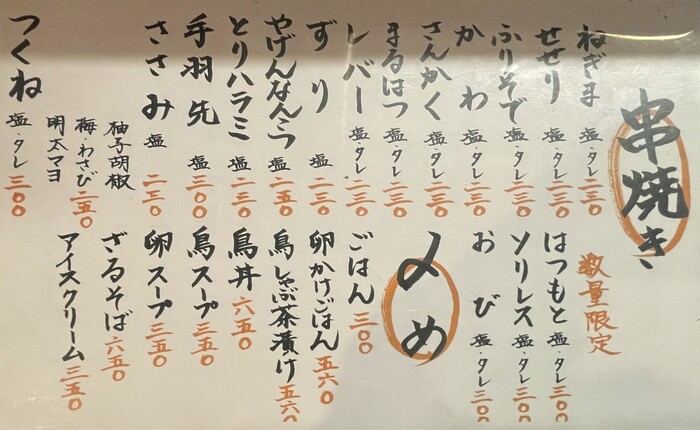 串焼き
ねぎま 塩・タレ 二三〇
せせり 塩・タレ 二三〇
ふりそで 塩・タレ 二三〇
かわ 塩・タレ 二三〇
さんかく 塩・タレ 二三〇
まるはつ 塩・タレ 二三〇
レバー 塩・タレ 二三〇
ずり 塩 二三〇
やげんなんこつ 塩 二五〇
とりハラミ 塩 二三〇
手羽先 塩 三〇〇
ささみ 塩 二三〇
柚子胡椒
梅・わさび 二五〇
明太マヨ
つくね 塩・タレ 三〇〇
数量限定
はつもと 塩・タレ 三〇〇
ソリレス 塩・タレ 三〇〇
おび 塩・タレ 三〇〇
〆め
ごはん 三〇〇
卵かけごはん 五六〇
鳥しゃぶ茶漬け 五六〇
鳥丼 六五〇
鳥スープ 三五〇
卵スープ 三五〇
ざるそば 六五〇
アイスクリーム 三五〇